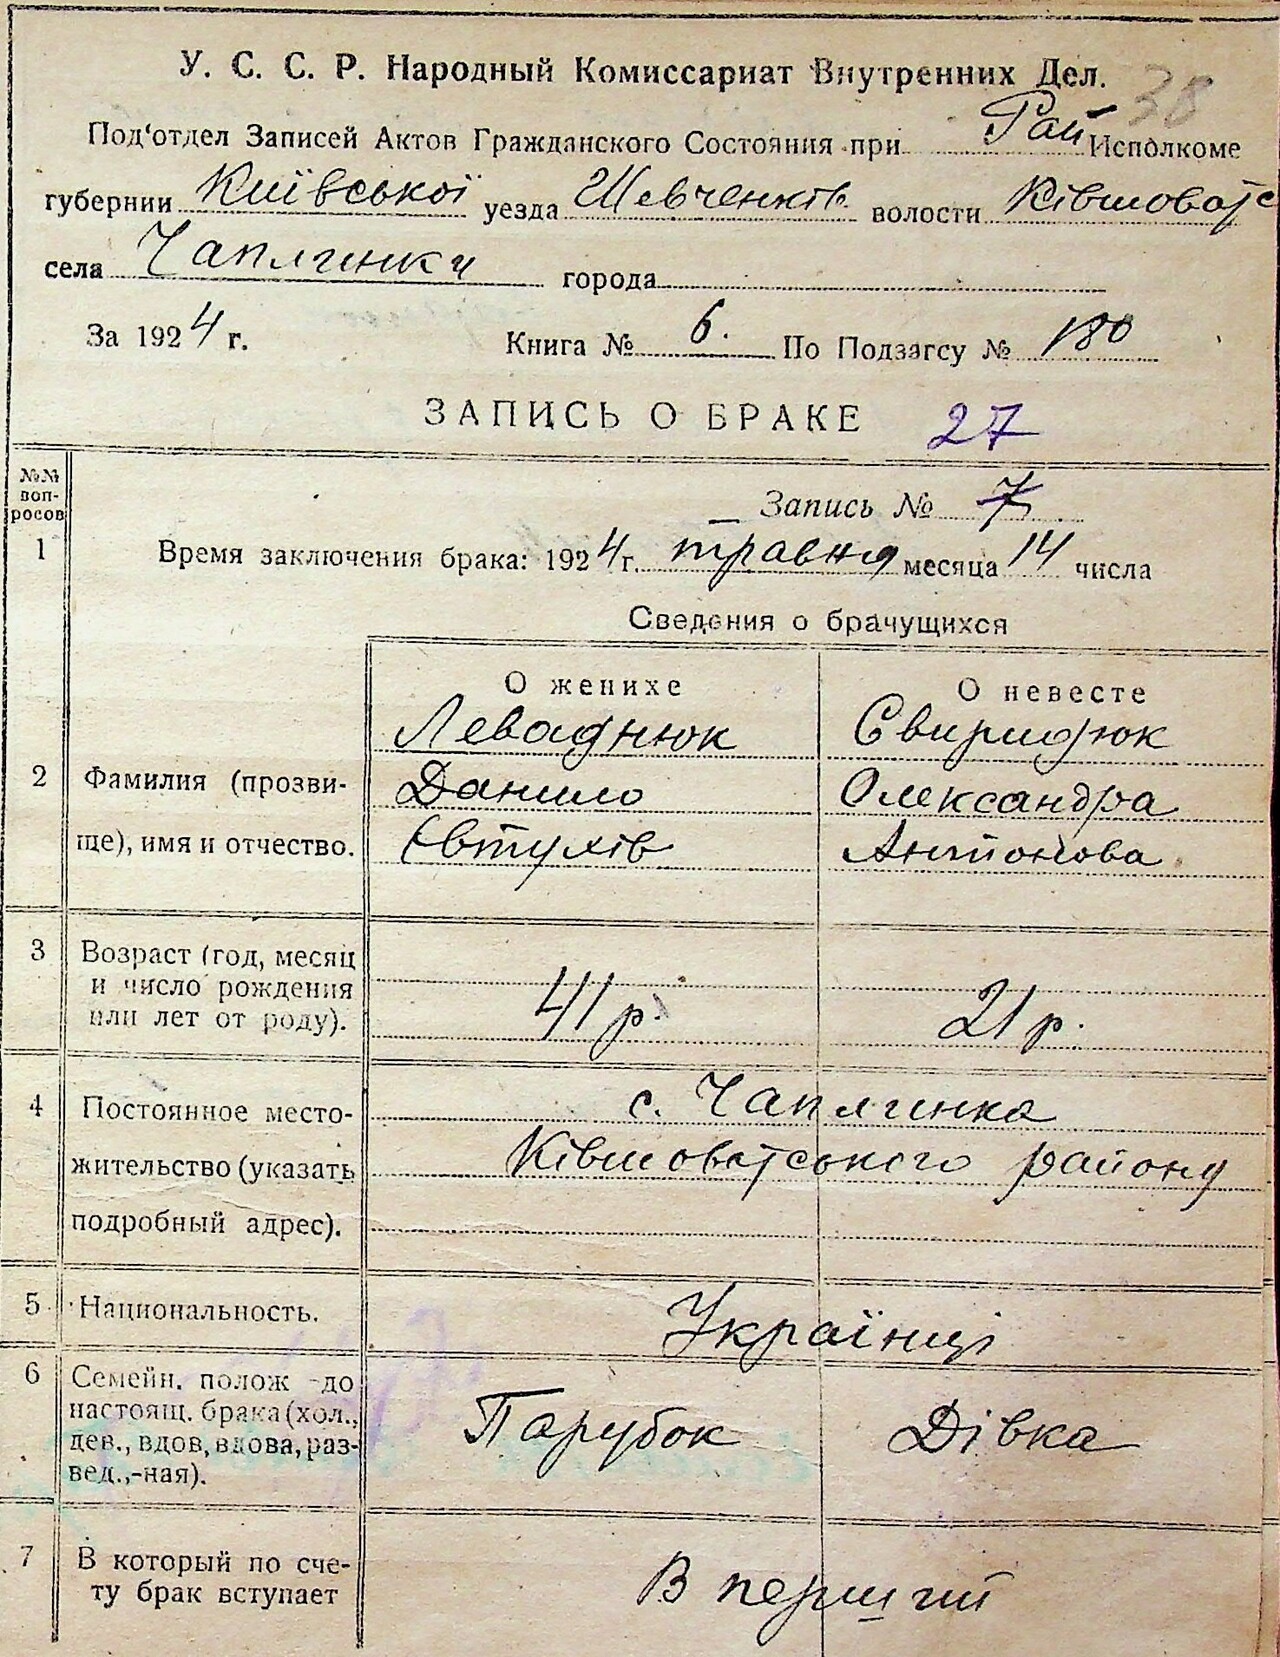 38
У. С. С. Р. Народный Комиссариат Внутренних Дел.
Под'отдел Записей Актов Гражданского Состояния при Рай Исполкоме
губернии Київської уезда Шевченків. волости Ківшоватс
села Чаплинки города
За 1924 г. Книга № 6. По Подзагсу № 180
ЗАПИСЬ О БРАКЕ 27
№№ вопросов
Запись № 7
1 Время заключения брака: 1924 г. травня месяца 14 числа
Сведения о брачущихся
О женихе О невесте
Леваднюк Свиридюк
2 Фамилия (прозви- Данило Олександра
ще), имя и отчество. Євтухів Антонова
3 Возраст (год, месяц
и число рождения 41 р. 21 р.
или лет от роду).
4 Постоянное место- с. Чаплинка
жительство (указать Ківшоватського району
подробный адрес).
5 Национальность. Українці
6 Семейн. полож до
настоящ. брака (хол., Парубок Дівка
дев., вдов, вдова, раз-
вед.,-ная).
7 В который по сче- В перший
ту брак вступает